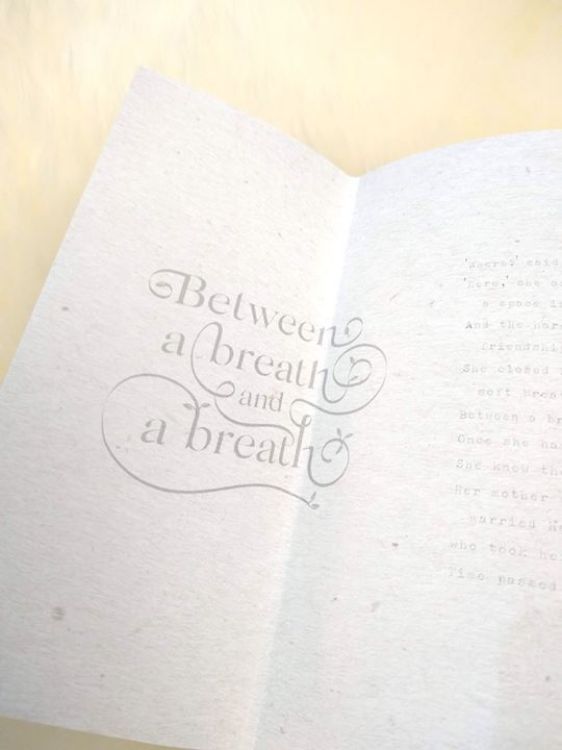 Between
a breath
and
a breath
said
'Here,' she
a space
And the
friendship
She closed
soft
Between a
Once she
She knew
Her mother
married
who took
Time passed